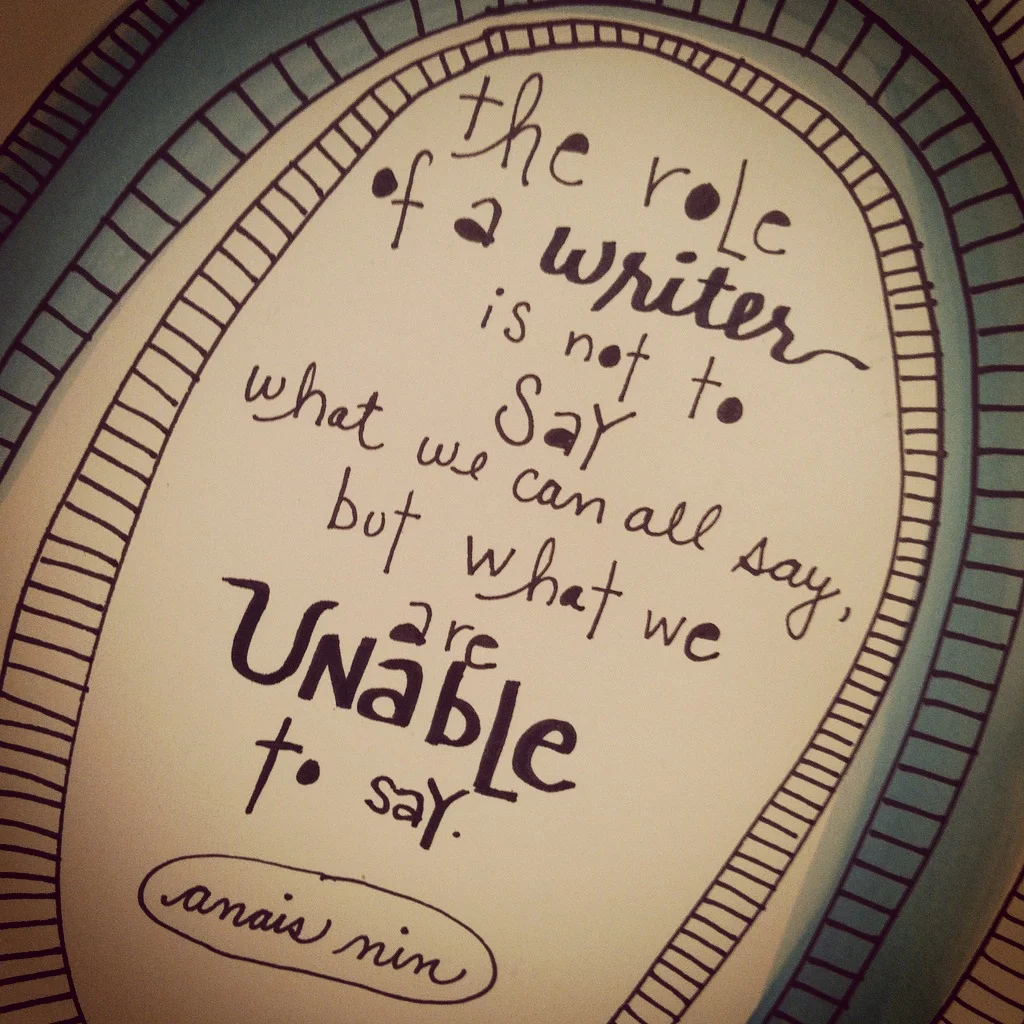 the role
of a writer
is not to
say
what we can all say,
but what we
are
Unable
to say.
anais nin